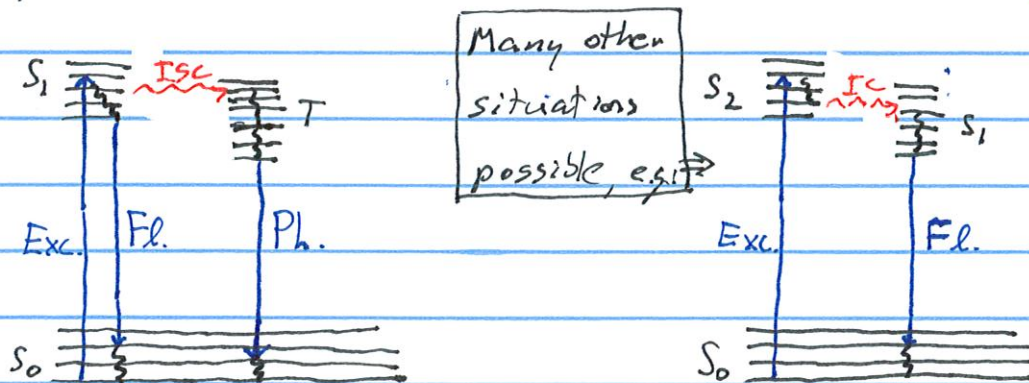 S₁ ISC T
Exc. Fl. Ph.
S₀
Many other
situations
possible, e.g.: ⇒
S₂ IC S₁
Exc. Fl.
S₀